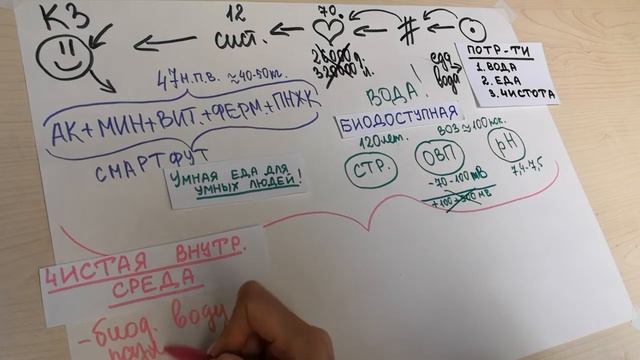 КЗ
12
сист.
70.
25000
320000 л.
#
еда
вода
ПОТР-ТИ
1. ВОДА
2. ЕДА
3. ЧИСТОТА
47 н.п.в. ≈40-50т.
АК+МИН+ВИТ.+ФЕРМ+ПНЖК
СМАРТФУТ
УМНАЯ ЕДА ДЛЯ
УМНЫХ ЛЮДЕЙ!
ВОДА!
БИОДОСТУПНАЯ
120 лет.
ВОЗ ≈100 пок.
СТР.
ОВП
рН
-70-100mV
7,4-7,5
ЧИСТАЯ ВНУТР.
СРЕДА
- биод. воду